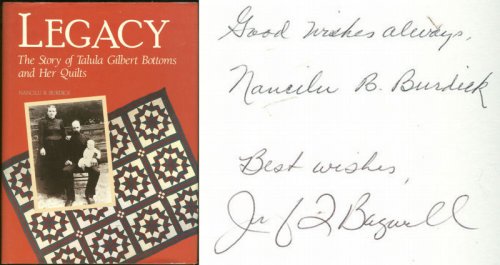 LEGACY
The Story of Talula Gilbert Bottoms
and Her Quilts
NANCILU B. BURDICK
Good wishes always,
Nancilu B. Burdick
Best wishes,
Bagwell